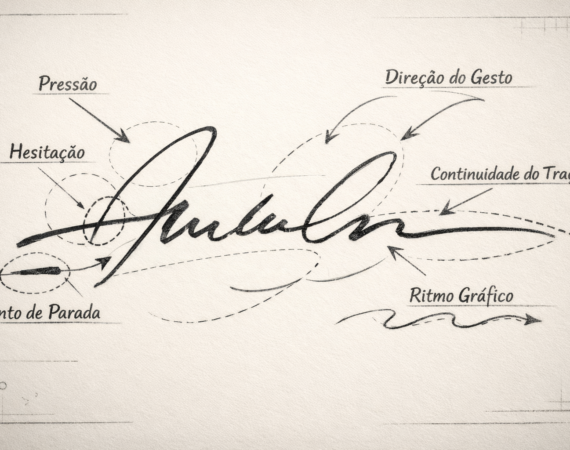 Pressão
Direção do Gesto
Hesitação
Continuidade do
de Parada
Ritmo Gráfico